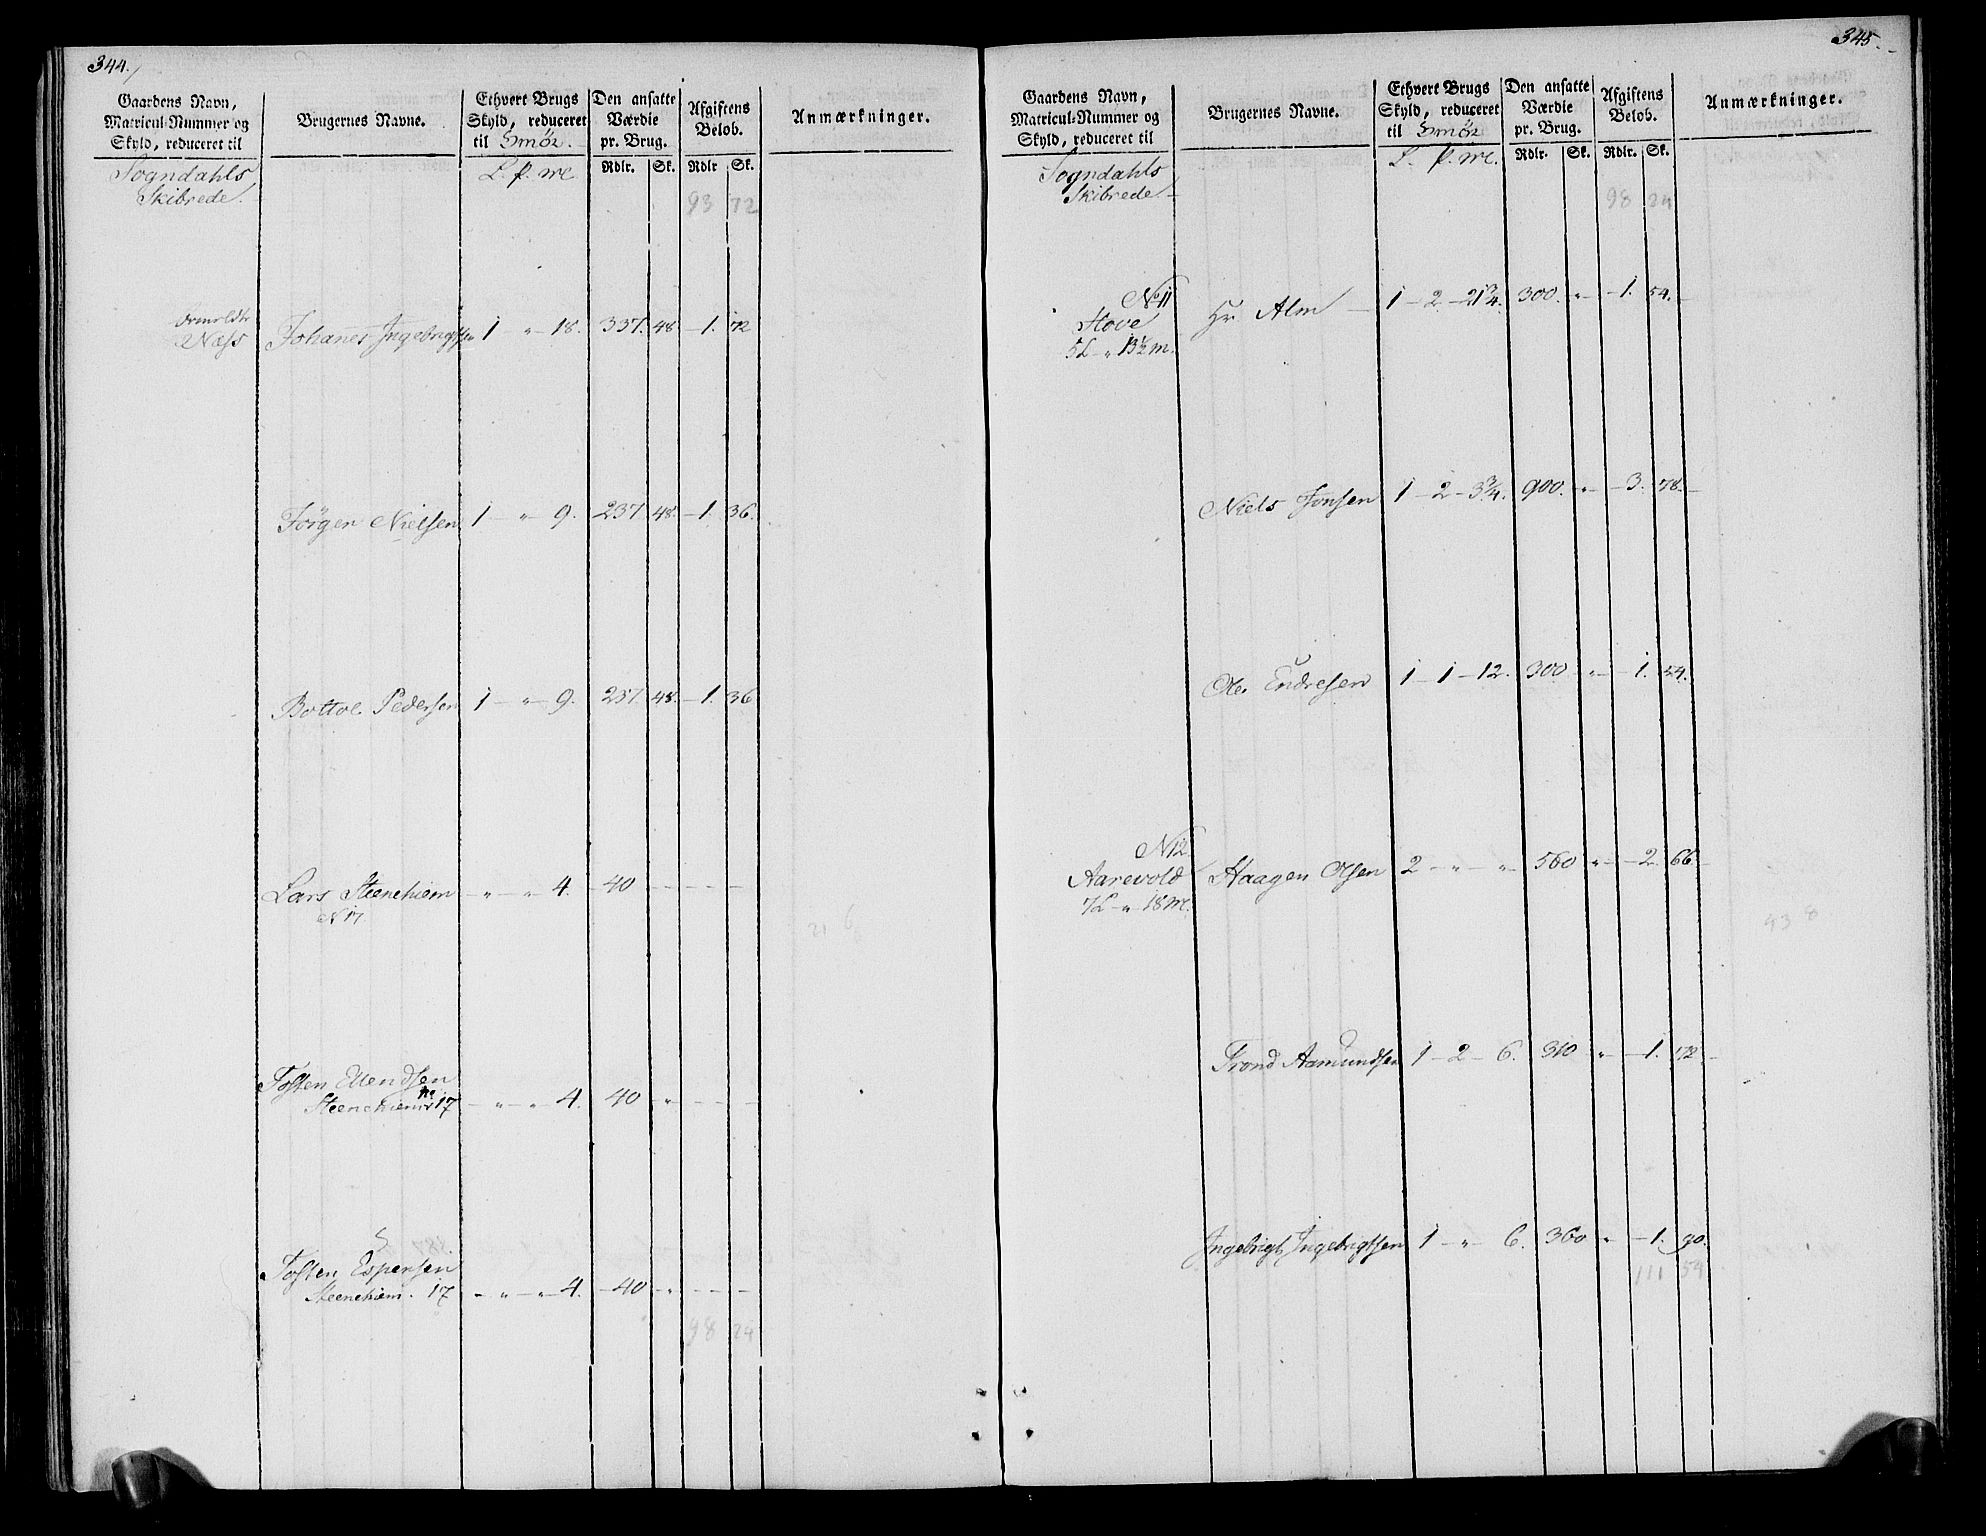 344.
Gaardens Navn,
Matricul-Nummer og
Skyld, reduceret til
Brugernes Navne.
Ethvert Brugs
Skyld, reduceret
til Smör.
Den ansatte
Værdie
pr. Brug.
Afgiftens
Belob.
Anmærkninger.
Sogndahls
Skibrede.
L. p. mc.
Rdlr. Sk. Rdlr Sk.
93 72
Næss Johanes Ingebrigtsen 1 " 18. 337. 48 1. 72
Jörgen Nielsen 1 " 9. 237. 48. 1. 36.
Bottol Pedersen 1 " 9. 237. 48. 1. 36
Lars Steenehiem " " 4. 40
N 17
Tosten Ellendsen
Steenehiem No 17 " " 4. 40 "
Tosten Espensen
Steenehiem. 17 " " 4. 40 "
98 24
21 6
345.
Gaardens Navn,
Matricul-Nummer og
Skyld, reduceret til
Brugernes Navne.
Ethvert Brugs
Skyld, reduceret
til Smör
Den ansatte
Værdie
pr. Brug.
Afgiftens
Belob.
Anmærkninger.
Sogndahls
Skibrede
L. p. mc.
Rdlr. Sk. Rdlr. Sk.
98 24
No 11
Hove
5L " 13½ m.
Hr Alm 1 2 21¾. 300. " 1. 54.
Niels Jonsen 1 2 3¾. 900. " 3. 78.
Ole Endresen 1 1 12. 300 " 1. 54.
N 12.
Aarevold
7L " 18 m.
Haagen Olsen 2 " " 560 " 2. 66
43 8
Trond Aamundsen 1 2 6. 310 " 1. 72
Ingebrigt Ingebrigtsen 1 " 6. 360 " 1. 90.
111 54